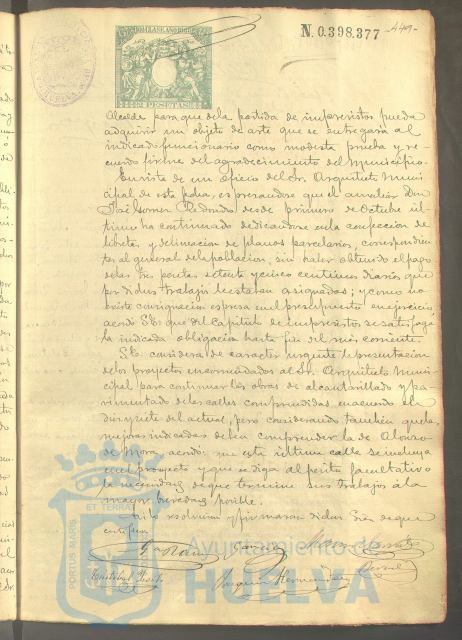 N. 0.398.377 -449-
2 PESETAS
Alcalde para que de la partida de imprevistos pueda
adquirir un objeto de arte que se entregará al
indicado funcionario como modesta prueba y re-
cuerdo firme del agradecimiento del Municipio.
En vista de un oficio del Sr. Arquitecto Muni-
cipal de esta fecha, expresando que el auxiliar Don
José Gomez Redondo desde primero de Octubre úl-
timo ha continuado dedicandose en la confeccion de
libretas y delineacion de planos parcelarios, correspondien
tes al general de la poblacion, sin haber obtenido el pago
de las tres pesetas setenta y cinco centimos diarios que
por dichos trabajos le estaban asignados; y como no
existe consignacion espresa en el presupuesto en ejercicio,
acordó S.E. que del Capitulo de imprevistos se satisfaga
la indicada obligacion hasta fin del mes corriente.
S.E. considera de caracter urgente la presentacion
de los proyectos encomendados al Sr. Arquitecto Muni-
cipal para continuar las obras de alcantarillado y pa-
vimentado de las calles comprendidas en acuerdo de
diez y siete del actual, pero considerando tambien que las
mejoras indicadas deben comprender la de Alonso
de Mora, acordó: que esta última calle se incluya
en el proyecto y que se diga al perito facultativo
la necesidad de que termine sus trabajos á la
mayor brevedad posible.
Asi lo resolvieron y firmaron dichos Sres. de que
certifico.
Garcia
Joaquin Hernandez
PORTUS MARIS ET TERRAE
Ayuntamiento de
HUELVA